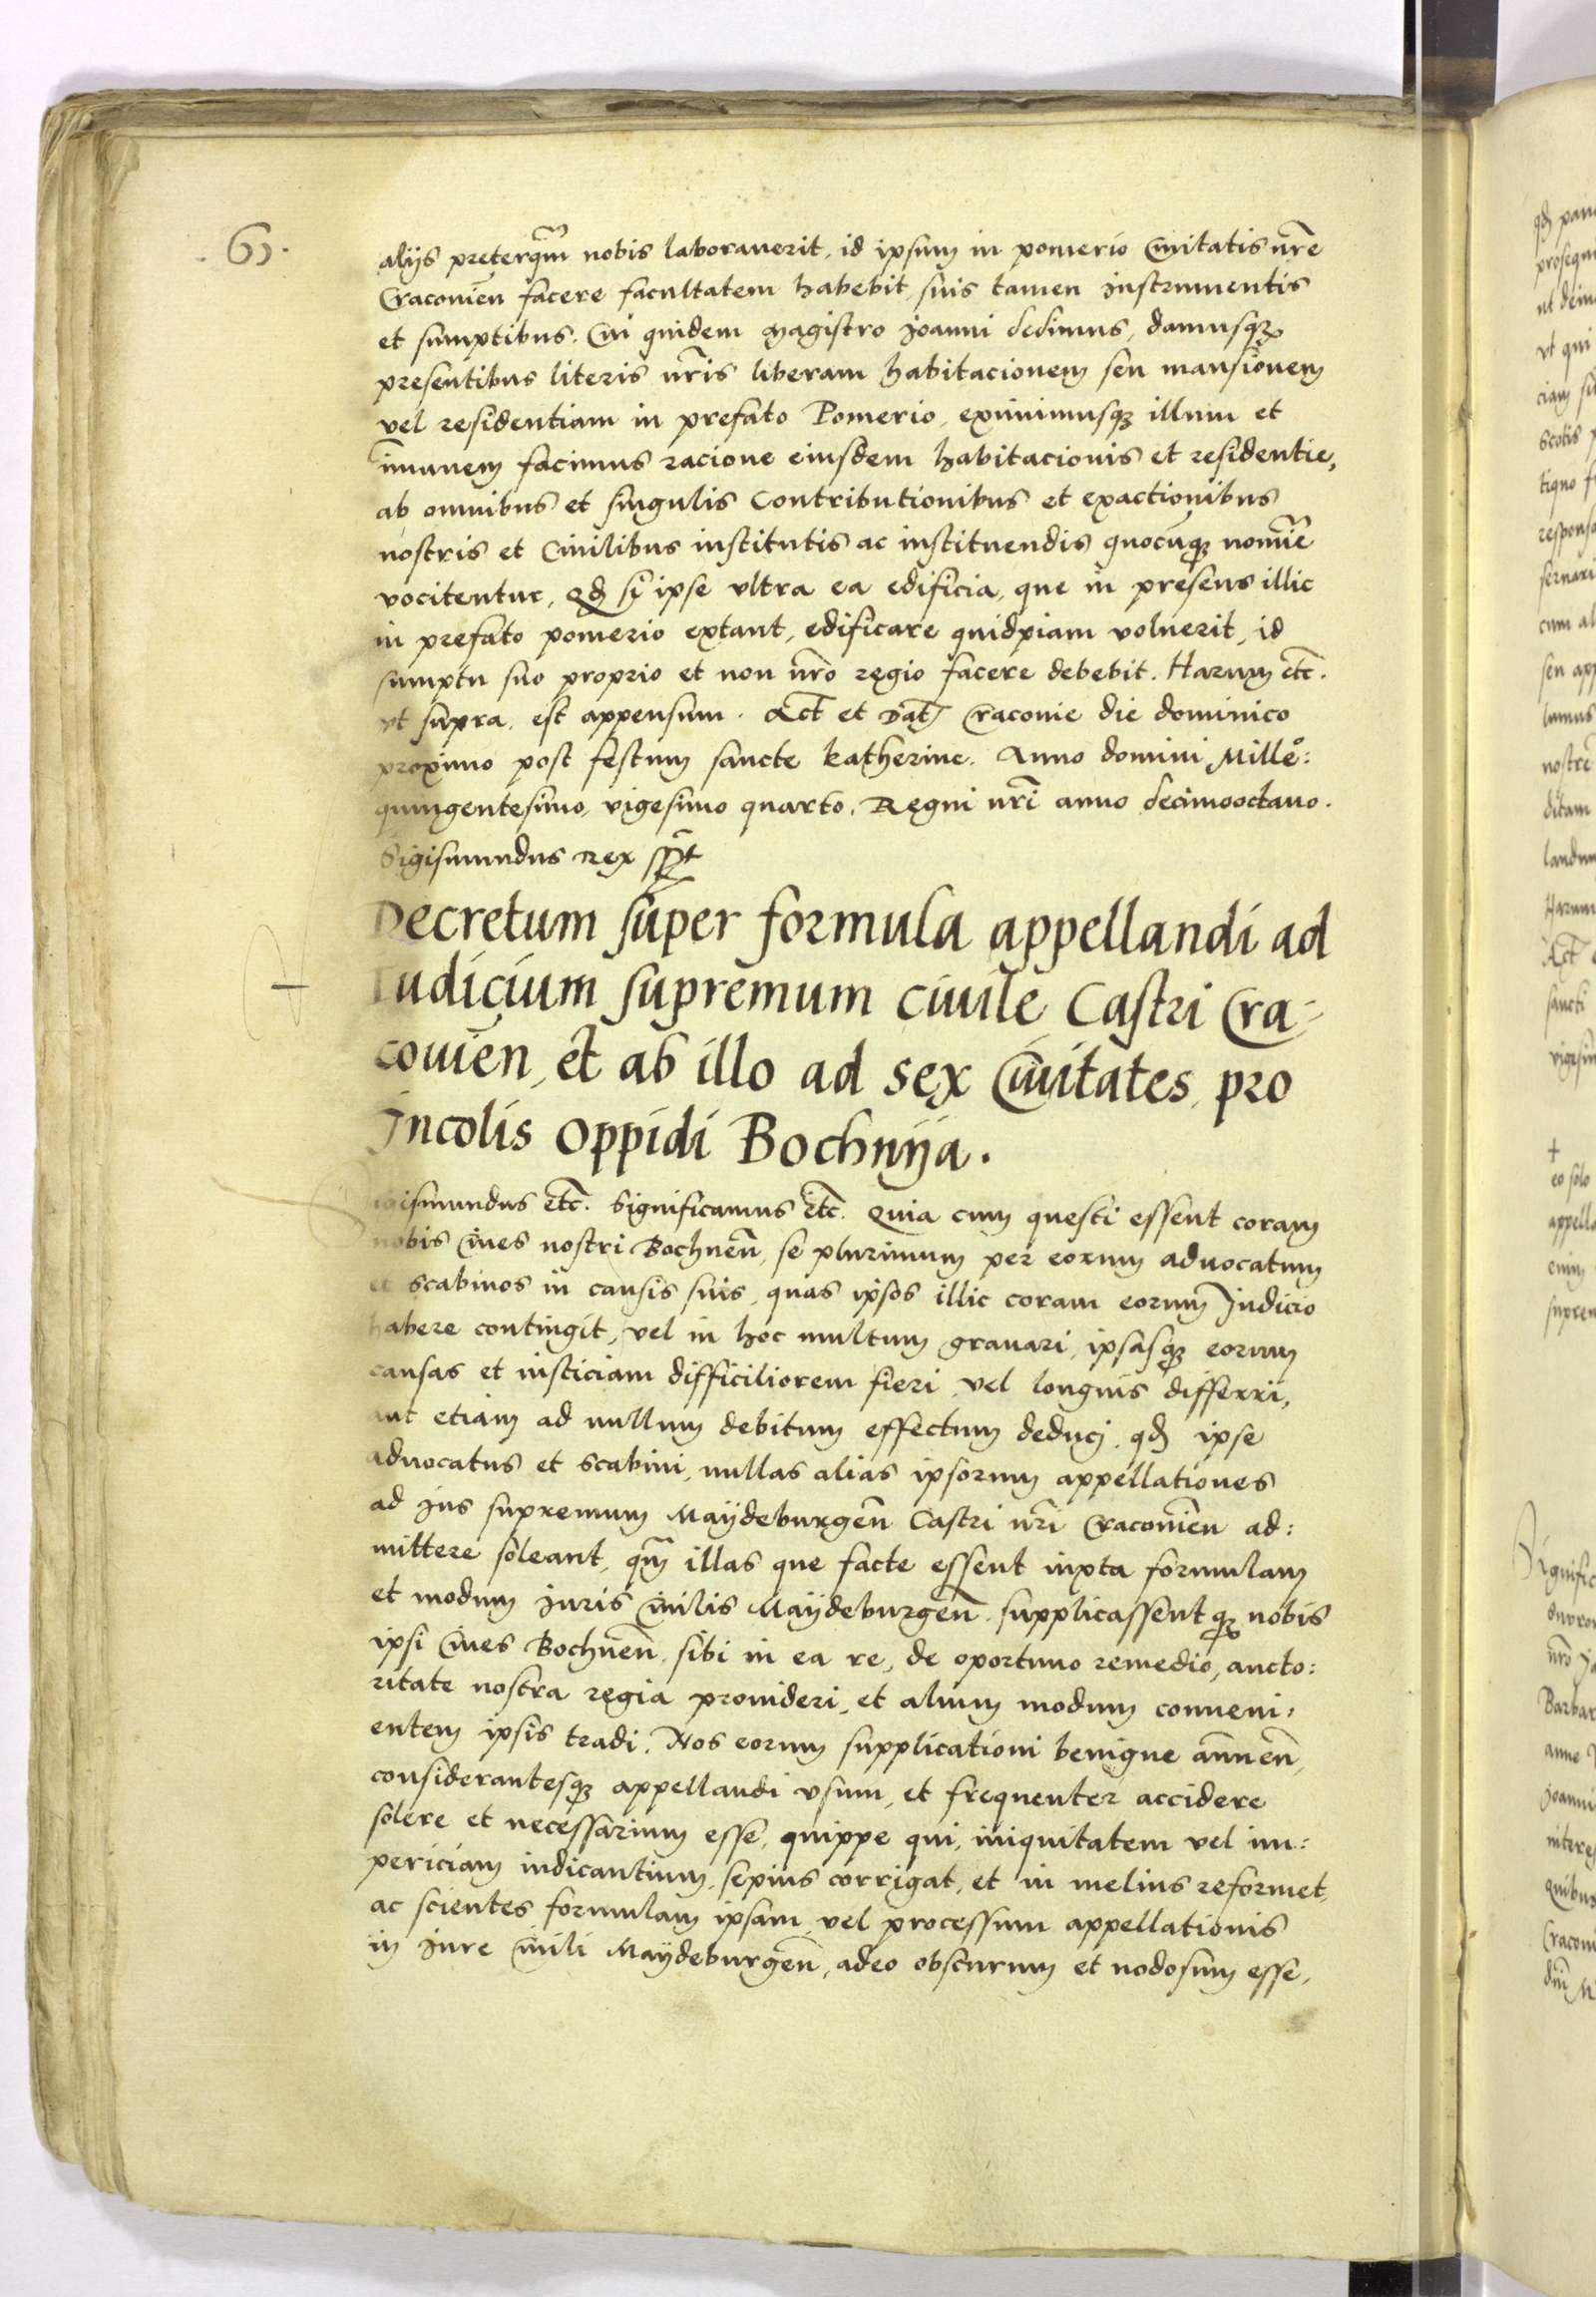 63.
alijs preterq̃m nobis laborauerit, id ipsum in pomerio Ciuitatis nr̃e
Cracouieñ facere facultatem habebit, suis tamen instrumentis
et sumptibus. Cui quidem Magistro Joanni dedimus, damusq3
presentibus literis nr̃is liberam habitacionem seu mansionem
vel residentiam in prefato Pomerio, eximimusq3 illum et
im̃unem facimus racione eiusdem habitacionis et residentie,
ab omnibus et singulis Contributionibus et exactionibus
nostris et Ciuilibus institutis ac instituendis quocũq3 nomĩe
vocitentur, Qđ si ipse vltra ea edificia, que in presens illic
in prefato pomerio extant, edificare quidpiam voluerit, id
sumptu suo proprio et non nr̃o regio facere debebit. Harum etc̃.
vt supra. est appensum. Act̃ et Dat̃ Cracouie die dominico
proximo post festum sancte Katherine. Anno domini Mille°:
quingentesimo, vigesimo quarto. Regni nr̃i anno decimooctauo.
Sigismundus Rex sspt̃
Decretum super formula appellandi ad
Iudicium supremum ciuile Castri Cra-
couieñ, et ab illo ad sex Ciuitates, pro
Incolis Oppidi Bochnija.
Sigismundus etc̃. Significamus etc̃. Quia cum questi essent coram
nobis Ciues nostri Bochneñ, se plurimum per eorum aduocatum
et Scabinos in causis suis, quas ipsos illic coram eorum Judicio
habere contingit, vel in hoc multum grauari, ipsasq3 eorum
causas et iusticiam difficiliorem fieri, vel longius differri,
aut etiam ad nullum debitum effectum deduci, qđ ipse
aduocatus et Scabini, nullas alias ipsorum appellationes
ad Jus supremum Maÿdeburgeñ Castri nr̃i Cracouieñ ad:
mittere soleant, q̃m illas que facte essent iuxta formulam
et modum Juris Ciuilis Maÿdeburgeñ. supplicassentq3 nobis
ipsi Ciues Bochneñ. sibi in ea re, de oportuno remedio, aucto:
ritate nostra regia prouideri, et alium modum conueni:
entem ipsis tradi. Nos eorum supplicationi benigne annueñ,
considerantesq3 appellandi vsum, et frequenter accidere
solere et necessarium esse, quippe qui, iniquitatem vel im:
periciam iudicantium, sepius corrigat, et in melius reformet,
ac scientes formulam ipsam, vel processum appellationis
in Jure Ciuili Maÿdeburgeñ, adeo obscurum et nodosum esse,